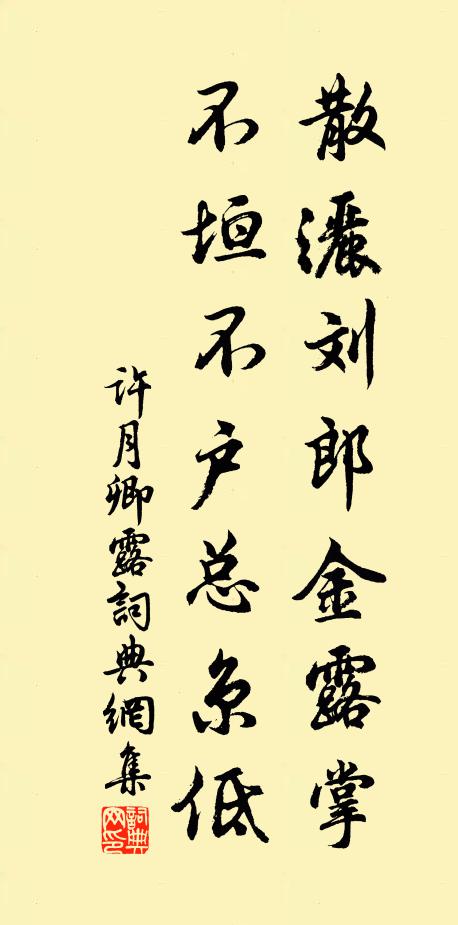 散灑刘郎金露掌
不垣不户总京低
许月卿露詞典網集
詞典网印